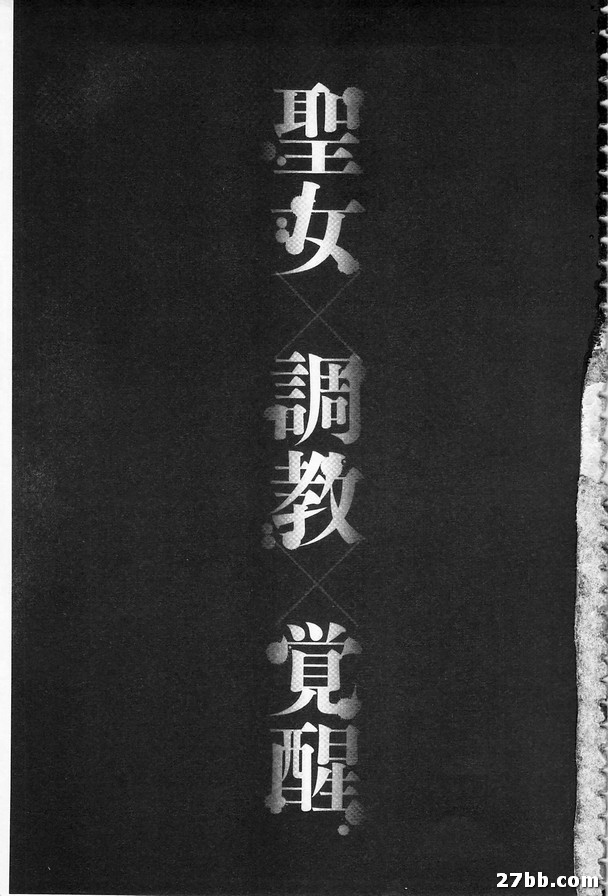 聖女×調教×覚醒
27bb.com